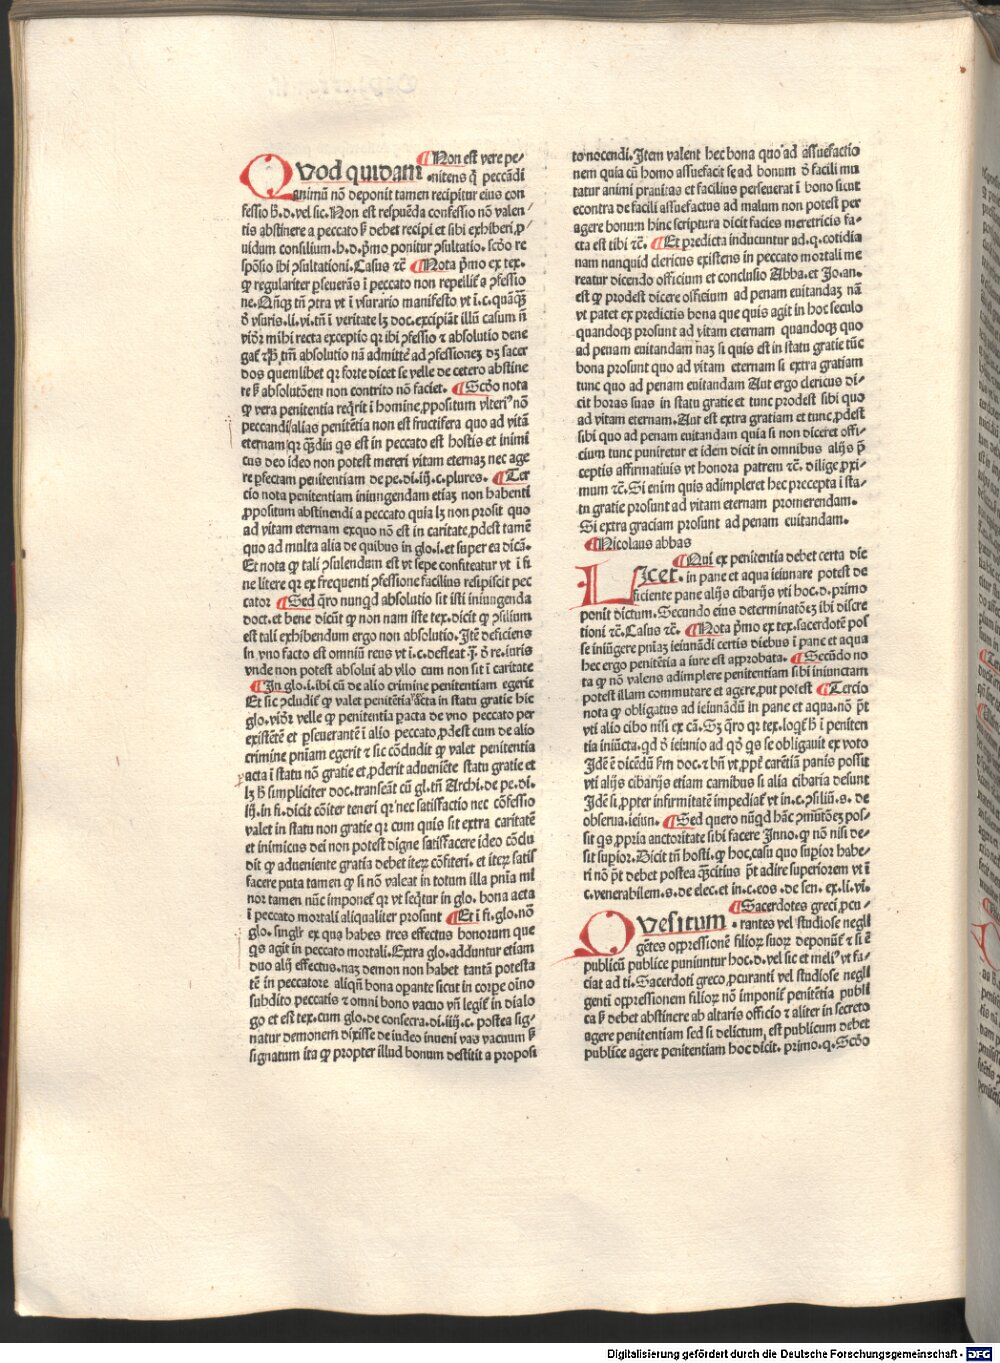 ¶Non est vere pe⸗
Quod quidam .nitens q̄ peccādi
animū nō deponit tamen recipitur eius con
fessio h̄.d.vel sic. Non est respuēda confessio nō valen⸗
tis abstinere a peccato s̄ debet recipi et sibi exhiberi p̱⸗
uidum consilium.h.d.p̄mo ponitur ꝯsultatio.scd̄o re
spōsio ibi ꝯsultationi. Casus ⁊c̄ ¶Nota p̄mo ex tex.
ꝙ regulariter ꝑseuerās ī peccato non repellit᷑ a ꝯfessio
ne.
vsuris.li.vi.tn̄ ī veritate lꝫ doc.excipiāt illū casum
mihi recta exceptio qr ibi ꝯfessio ⁊ absolutio dene
absolutio nā admittēt ad ꝯfessioneꝫ dꝫ sacer
dos quemlibet qr forte dicet se velle de cetero abstine
re s̄ absolutōem non contrito nō faciet. ¶Scd̄o nota
ꝙ vera penitentia reqrit ī homine ꝓpositum vlteriꝰ nō
peccandi alias penitētia non est fructifera quo ad vitā
eternam qr qꝫdiu qs est in peccato est hostis et inimi
cus deo ideo non potest mereri vitam eternaꝫ nec age
re ꝑfectam penitentiam de pe.di.iij.c.plures. ¶Ter
cio nota penitentiam iniungendam etiaꝫ non habenti
ꝓpositum abstinendi a peccato quia lꝫ non prosit quo
ad vitam eternam exquo nō est in caritate ꝓdest tamē
quo ad multa alia de quibus in glo.i.et super ea dicā.
Et nota ꝙ tali ꝯsulendum est vt sepe confiteatur vt ī fi
ne litere qr ex frequenti ꝯfessione facilius resipiscit pec
cator ¶Sed q̄ro nunqd absolutio sit isti iniungenda
doct. et bene dicūt ꝙ non nam iste tex.dicit ꝙ ꝯsilium
est tali exhibendum ergo non absolutio. Itē deficiens
in vno facto est omniū reus vt ī.c.defleat ꝗ̄.ꝺ̄ re.iuris
vnde non potest absolui ab vllo cum non sit ī caritate
¶In glo.i.ibi cū de alio crimine penitentiam egerit
Et sic ꝯcludit᷑ ꝙ valet penitētia acta in statu gratie hic
glo.vidr̄ velle ꝙ penitentia ꝑacta de vno peccato per
existētē et ꝑseuerantē ī alio peccato ꝓdest cum de alio
crimine pn̄iam egerit ⁊ sic cōcludit ꝙ valet penitentia
acta ī statu nō gratie et ꝓderit adueniēte statu gratie et
lꝫ h̄ simpliciter doc.transeāt cū gl.tn̄ Archi.de pe.di.
iij.in fi.dicit cōiter teneri qr nec satisfactio nec cōfessio
valet in statu non gratie qr cum quis sit extra caritatē
et inimicus dei non potest digne satisfacere ideo cōclu
dit ꝙ adueniente gratia debet iteꝝ cōfiteri.et iteꝝ satis
facere puta tamen ꝙ si nō valeat in totum illa pn̄ia mi
nor tamen nūc imponet᷑ qr vt seqtur in glo. bona acta
ī peccato mortali aliqualiter prosunt ¶Et ī fi.glo.nō
glo. singlr̄ ex qua habes tres effectus bonorum que
qs agit in peccato mortali. Extra glo.adduntur etiam
duo alij effectus.naꝫ demon non habet tantā potesta
tē in peccatore aliqn̄ bona oꝑante sicut in corpe oīno
subdito peccatis ⁊ omni bono vacuo vn̄ legit᷑ in dialo
go et est tex.cum glo.de consecra.di.iiij.c. postea sig⸗
natur demonem dixisse de iudeo inueni vas vacuum s̄
signatum ita ꝙ propter illud bonum destitit a proposi
to nocendi. Item valent hec bona quo ad assuefactio
nem quia cū homo assuefacit se ad bonum ꝺ̄ facili mu
tatur animi prauitas et facilius perseuerat ī bono sicut
econtra de facili assuefactus ad malum non potest per
agere bonum hinc scriptura dicit facies meretricis fa⸗
cta est tibi ⁊c̄. ¶Et predicta inducuntur ad.q.cotidia
nam nunquid clericus existens in peccato mortali me
reatur dicendo officium et conclusio Abba.et Jo.an.
est ꝙ prodest dicere officium ad penam euitandaꝫ nā
vt patet ex predictis bona que quis agit in hoc seculo
quandoqꝫ prosunt ad vitam eternam quandoqꝫ quo
ad penam euitandam naꝫ si quis est in statu gratie tūc
bona prosunt quo ad vitam eternam si extra gratiam
tunc quo ad penam euitandam Aut ergo clericus di⸗
cit horas suas in statu gratie et tunc prodest sibi quo
ad vitam eternam. Aut est extra gratiam et tunc ꝓdest
sibi quo ad penam euitandam quia si non diceret offi⸗
cium tunc puniretur et idem dicit in omnibus alijs p̄
ceptis affirmatiuis vt honora patrem ⁊c̄. dilige ꝓxi⸗
mum ⁊c̄. Si enim quis adimpleret hec precepta ī sta⸗
tu gratie prosunt ad vitam eternam promerendam.
Si extra graciam prosunt ad penam euitandam.
¶Nicolaus abbas
¶Qui ex penitentia debet certa die
Licet. in pane et aqua ieiunare potest de
ficiente pane alijs cibarijs vti hoc.d.primo
ponit dictum. Secundo eius determinatōeꝫ ibi discre
tioni ⁊c̄. Casus ⁊c̄. ¶Nota p̄mo ex tex.sacerdotē pos
se iniūgere pn̄iaꝫ ieiunādi certis diebus ī pane et aqua
hec ergo penitētia a iure est approbata. ¶Secūdo no
ta ꝙ nō valens adimplere penitentiam sibi iniunctam
potest illam commutare et agere ꝓut potest ¶Tercio
nota ꝙ obligatus ad ieiunādū in pane et aqua.nō p̄t
vti alio cibo nisi ex cā. Sꝫ q̄ro qr tex.loqt᷑ h̄ ī peniten
tia iniūcta.qd ꝺ̄ ieiunio ad qd̄ qs se obligauit ex voto
Idē ē dicēdū s̄m doc.⁊ hn̄ vt ꝓpt᷑ carētiā panis possit
vti alijs cibarijs etiam carnibus si alia cibaria desunt
Idē si ꝓpter infirmitatē impediat᷑ vt in.c.ꝯsiliū.s. de
obserua.ieiun. ¶Sed quero nūqd hāc ꝑmutōeꝫ pos⸗
sit qs ꝓpria auctoritate sibi facere Inno.ꝙ nō nisi de⸗
sit supior. Dicit tn̄ hosti.ꝙ hoc casu quo supior habe⸗
ri nō p̄t debet postea q̄sicitius p̄t adire superiorem vt ī
c.venerabilem.s.de elec.et in.c.eos.de sen.ex.li.vi.
¶Sacerdotes greci ꝓcu⸗
Quesitum .rantes vel studiose negli
gētes oppressionē filioꝝ suoꝝ deponūt᷑ ⁊ si ē
publicū publice puniuntur hoc.d.vel sic et meliꝰ vt fa⸗
ciat ad ti. Sacerdoti greco ꝓcuranti vel studiose negli
genti oppressionem filioꝝ nō imponit᷑ penitētia publi
ca s̄ debet abstinere ab altaris officio ⁊ aliter in secreto
agere penitentiam sed si delictum est publicum debet
publice agere penitentiam hoc dicit. primo.q. Scd̄o
Digitalisierung gefördert durch die Deutsche Forschungsgemeinschaft - DFG